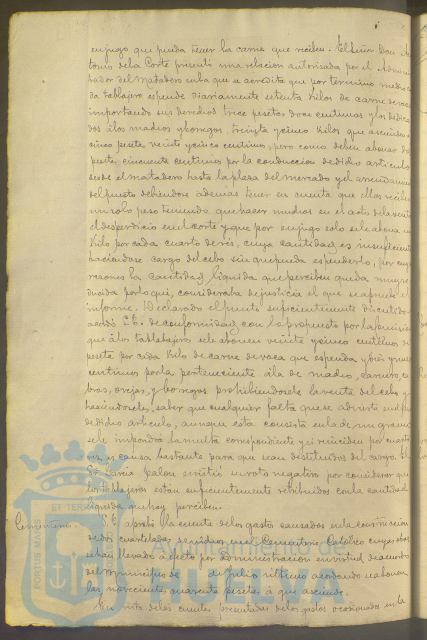 enjugo que pueda tener la carne que reciben. El Señor Don An-
tonio de la Corte presentó una relacion autorizada por el Adminis-
trador del Matadero en la que se acredita que por termino medio ca-
da tablajero espende diariamente setenta kilos de carne de vaca
importando sus derechos trece pesetas doce centimos y los dedica-
dos á los machos y borregos, treinta y cinco kilos que ascienden á
cinco pesetas veinte y cinco centimos, pero como deben abonar dos
pesetas cincuenta centimos por la conduccion de dicho articulo
desde el matadero hasta la plaza del mercado y el arrendamiento
del puesto debiendose ademas tener en cuenta que ellos reciben
un solo peso teniendo que hacer muchos en el acto de la venta
el desperdicio en el corte y que por enjugo solo se le abona un
Kilo por cada cuarto de res, cuya cantidad es insuficiente
haciendose cargo del cebo sin que pueda espenderlo, por cuyas
razones la cantidad liquida que perciben queda muy re-
ducida por lo que, consideraba de justicia el que se apruebe el
informe. Declarado el punto suficientemente discutido
acordó S. E. de conformidad con lo propuesto por la comision
que á los tablajeros se les abonen veinte y cinco centimos de
peseta por cada Kilo de carne de vaca que espenda y diez y nueve
centimos por la perteneciente á la de macho, carnero, ca-
bras, ovejas, y borregos prohibiendosele la venta del cebo y
haciendoseles saber que cualquier falta que se advierta en el peso
de dicho articulo, aunque esta consista en la de un gramo
se le impondrá la multa correspondiente y si reinciden por cuarta
vez, es causa bastante para que sean destituidos del cargo. El
Sr. Garcia Palon emitió su voto negativo por considerar que
los tablajeros están suficientemente retribuidos con la cantidad
liquida que hoy perciben.
Cementerio. S. E. aprobó la cuenta de los gastos causados en la construccion
de dos cuarteladas de nichos en el Cementerio Católico cuyas obras
se han llevado á efecto por administracion en virtud de acuerdo
del municipio de de Julio ultimo acordando se abonen
las novecientas cuarenta pesetas á que asciende.
En vista de las cuentas presentadas de los gastos ocasionados en la
PORTUS MARIS ET TERRÆ
Ayuntamiento de